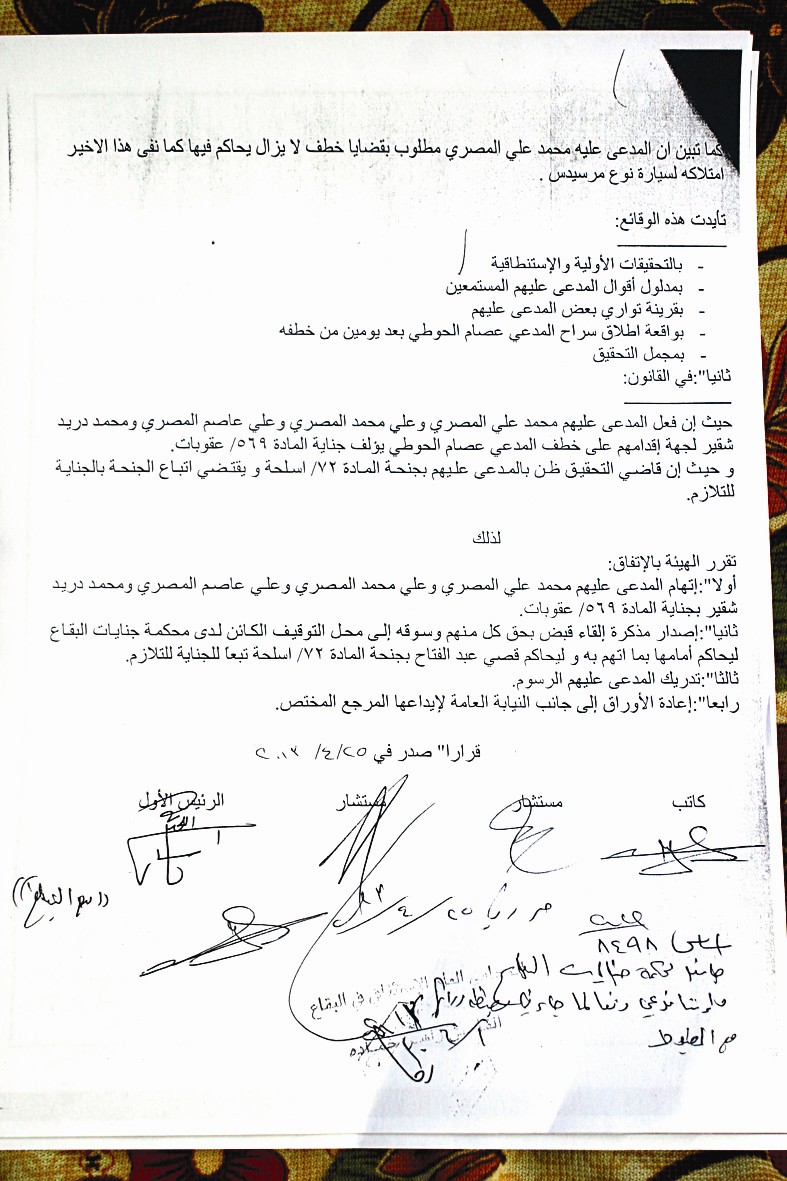 كما تبين ان المدعى عليه محمد علي المصري مطلوب بقضايا خطف لا يزال يحاكم فيها كما نفى هذا الاخير
امتلاكه لسيارة نوع مرسيدس .
تأيدت هذه الوقائع:
- بالتحقيقات الأولية والإستنطاقية
- بمدلول أقوال المدعى عليهم المستمعين
- بقرينة تواري بعض المدعى عليهم
- بواقعة اطلاق سراح المدعي عصام الحوطي بعد يومين من خطفه
- بمجمل التحقيق
ثانيا":في القانون:
حيث إن فعل المدعى عليهم محمد علي المصري وعلي محمد المصري وعلي عاصم المصري ومحمد دريد
شقير لجهة إقدامهم على خطف المدعي عصام الحوطي يؤلف جناية المادة ٥٦٩/ عقوبات.
و حيث إن قاضي التحقيق ظن بالمدعى عليهم بجنحة المادة ٧٢/ اسلحة و يقتضي اتباع الجنحة بالجناية
للتلازم.
لذلك
تقرر الهيئة بالإتفاق:
أولا":إتهام المدعى عليهم محمد علي المصري وعلي محمد المصري وعلي عاصم المصري ومحمد دريد
شقير بجناية المادة ٥٦٩/ عقوبات.
ثانيا":إصدار مذكرة إلقاء قبض بحق كل منهم وسوقه إلى محل التوقيف الكائن لدى محكمة جنايات البقاع
ليحاكم أمامها بما اتهم به و ليحاكم قصي عبد الفتاح بجنحة المادة ٧٢/ اسلحة تبعاً للجناية للتلازم.
ثالثا":تدريك المدعى عليهم الرسوم.
رابعا":إعادة الأوراق إلى جانب النيابة العامة لإيداعها المرجع المختص.
قرارا" صدر في ٢٥/٤/٢٠١٣
كاتب مستشار مستشار الرئيس الأول
٢٥/٤/
٨٤٩٨
في البقاع